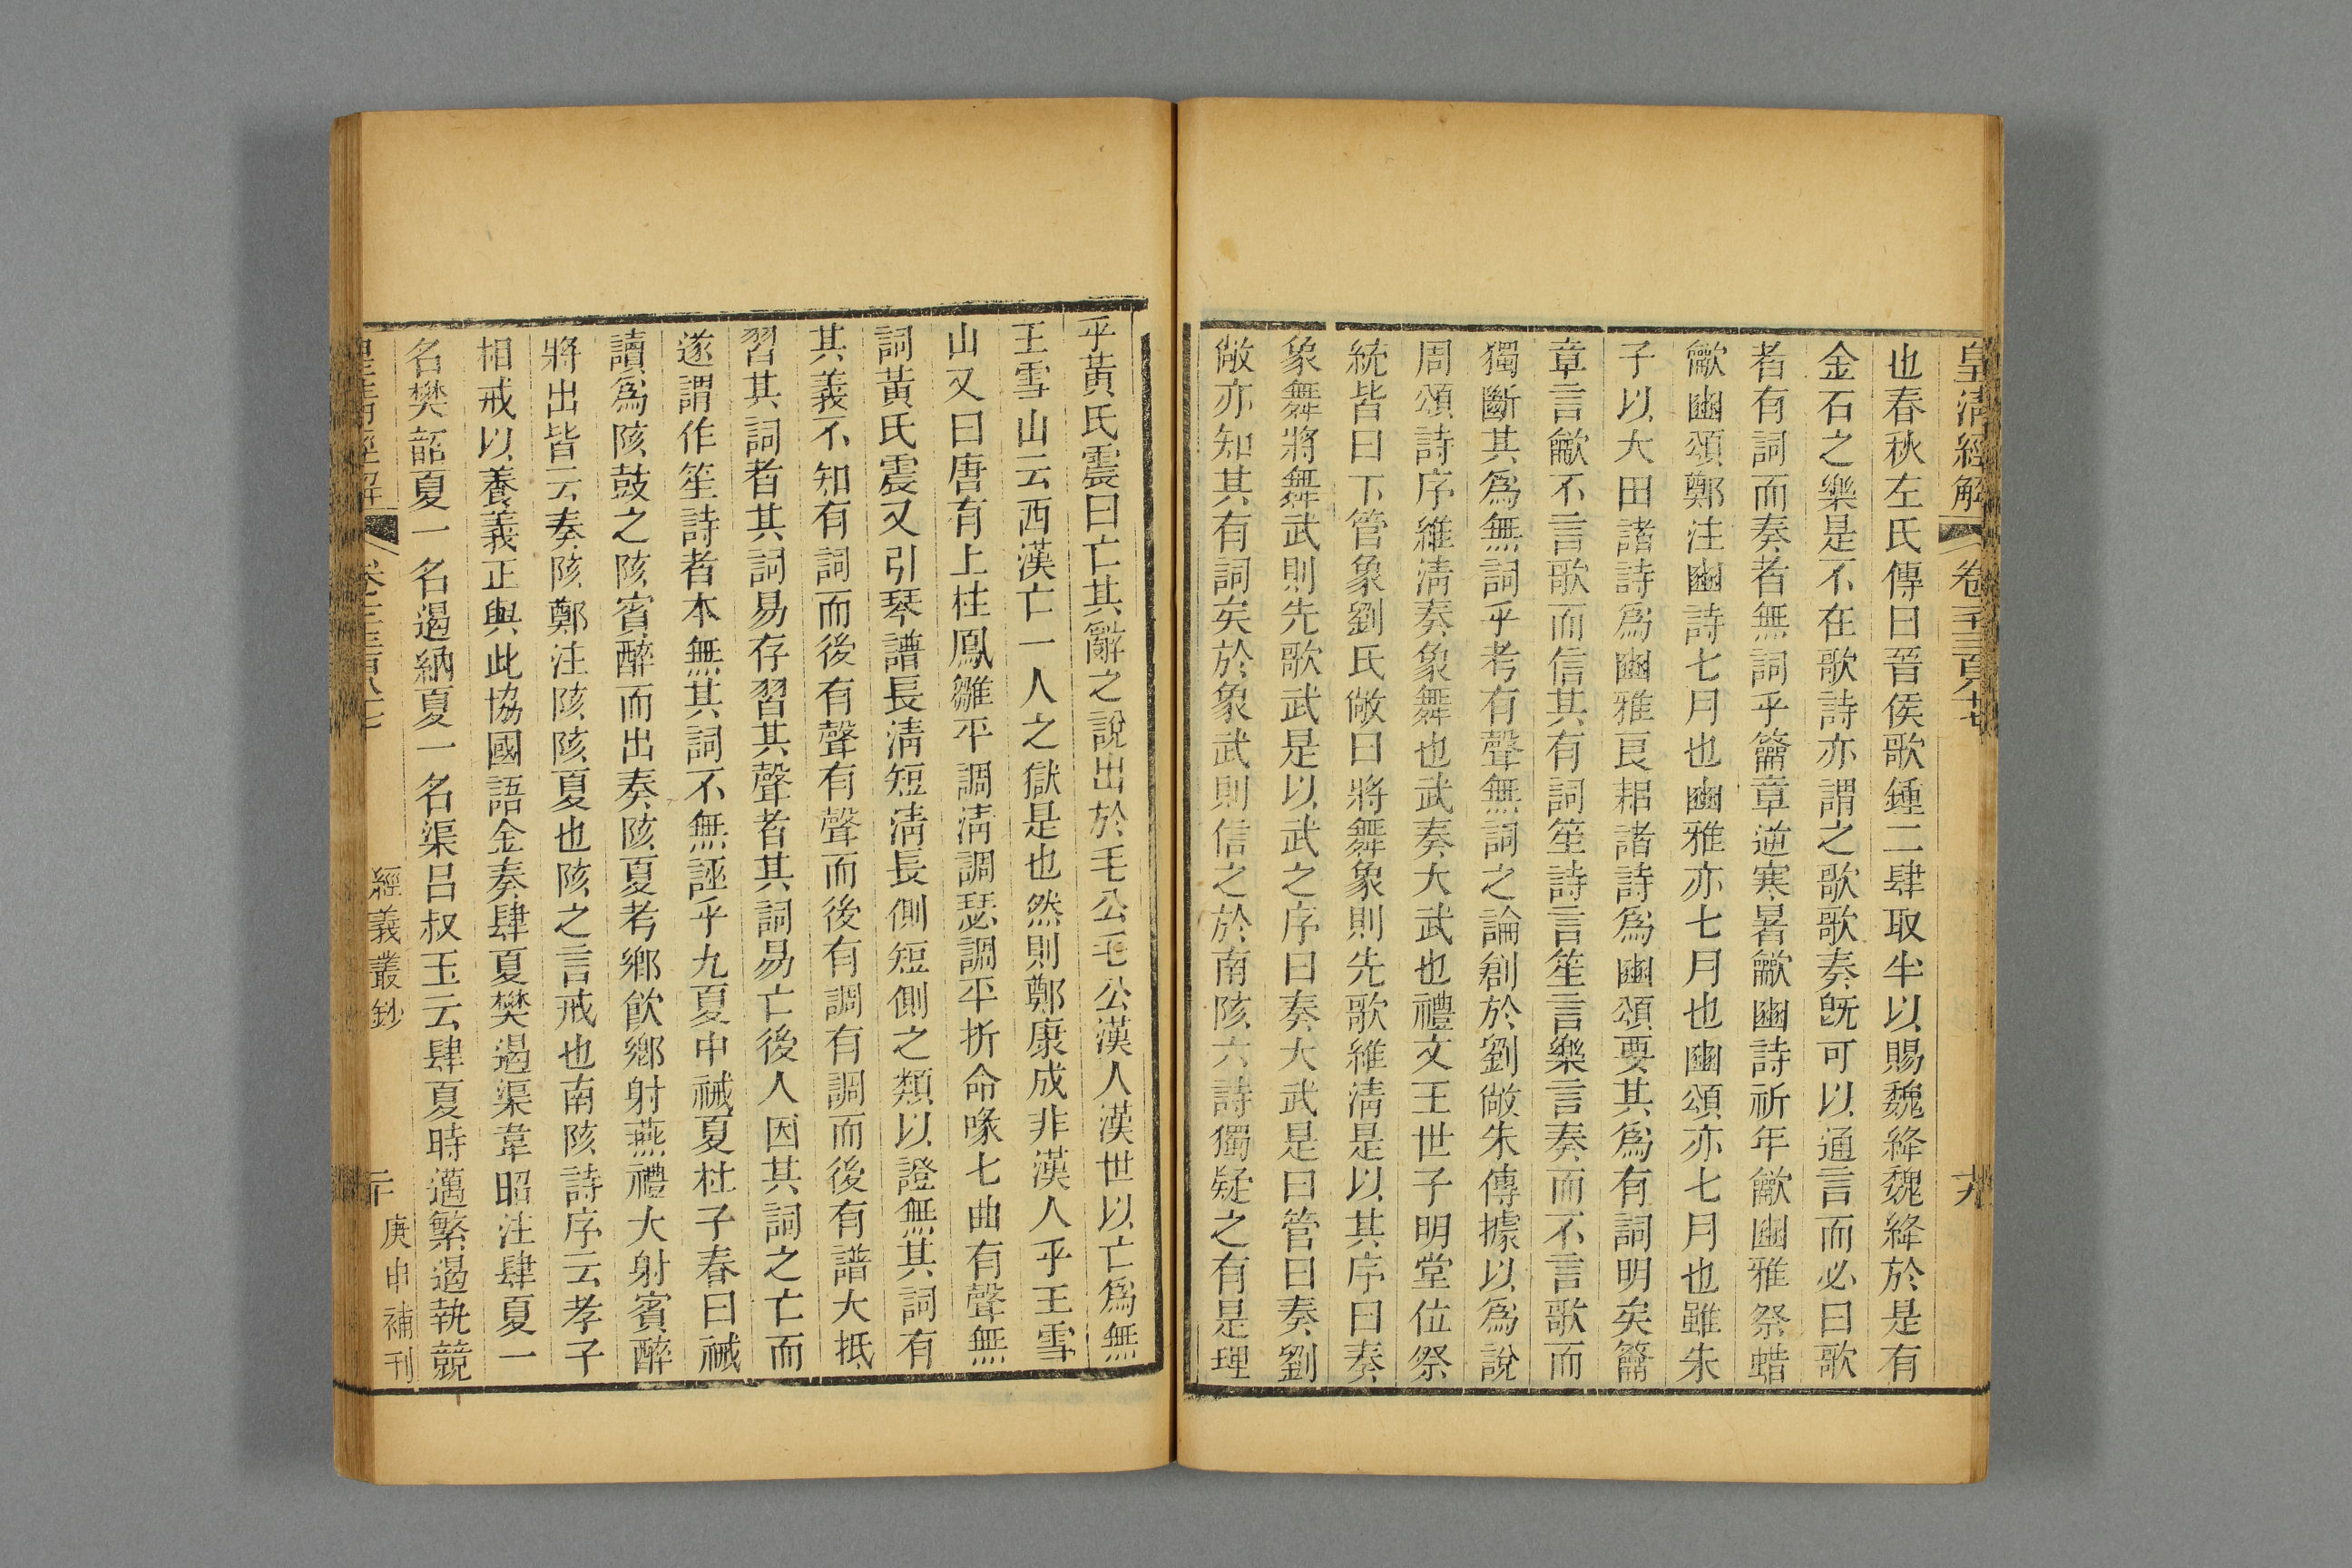 皇清經解
卷
十九
也春秋左氏傳曰晉侯歌鍾二肆取半以賜魏絳魏絳於是有
金石之樂是不在歌詩亦謂之歌歌奏旣可以通言而必曰歌
者有詞而奏者無詞乎籥章逆寒暑龡豳詩祈年龡豳雅祭蜡
龡豳頌鄭注豳詩七月也豳雅亦七月也豳頌亦七月也雖朱
子以大田諸詩爲豳雅良耜諸詩爲豳頌要其爲有詞明矣籥
章言龡不言歌而信其有詞笙詩言笙言樂言奏而不言歌而
獨斷其爲無詞乎考有聲無詞之論創於劉敞朱傳據以爲說
周頌詩序維淸奏象舞也武奏大武也禮文王世子明堂位祭
統皆曰下管象劉氏敞曰將舞象則先歌維淸是以其序曰奏
象舞將舞武則先歌武是以武之序曰奏大武是曰管曰奏劉
敞亦知其有詞矣於象武則信之於南陔六詩獨疑之有是理
乎黃氏震曰亡其辭之說出於毛公毛公漢人漢世以亡爲無
王雪山云西漢亡一人之獄是也然則鄭康成非漢人乎王雪
山又曰唐有上柱鳳雛平調淸調瑟調平折命喙七曲有聲無
詞黃氏震又引琴譜長淸短淸長側短側之類以證無其詞有
其義不知有詞而後有聲有聲而後有調有調而後有譜大抵
習其詞者其詞易存習其聲者其詞易亡後人因其詞之亡而
遂謂作笙詩者本無其詞不無誣乎九夏中祴夏杜子春曰祴
讀爲陔鼓之陔賓醉而出奏陔夏考鄉飮鄉射燕禮大射賓醉
將出皆云奏陔鄭注陔陔夏也陔之言戒也南陔詩序云孝子
相戒以養義正與此協國語金奏肆夏樊遏渠韋昭注肆夏一
名樊韶夏一名遏納夏一名渠呂叔玉云肆夏時邁繁遏執競
經義叢鈔
庚申補刊